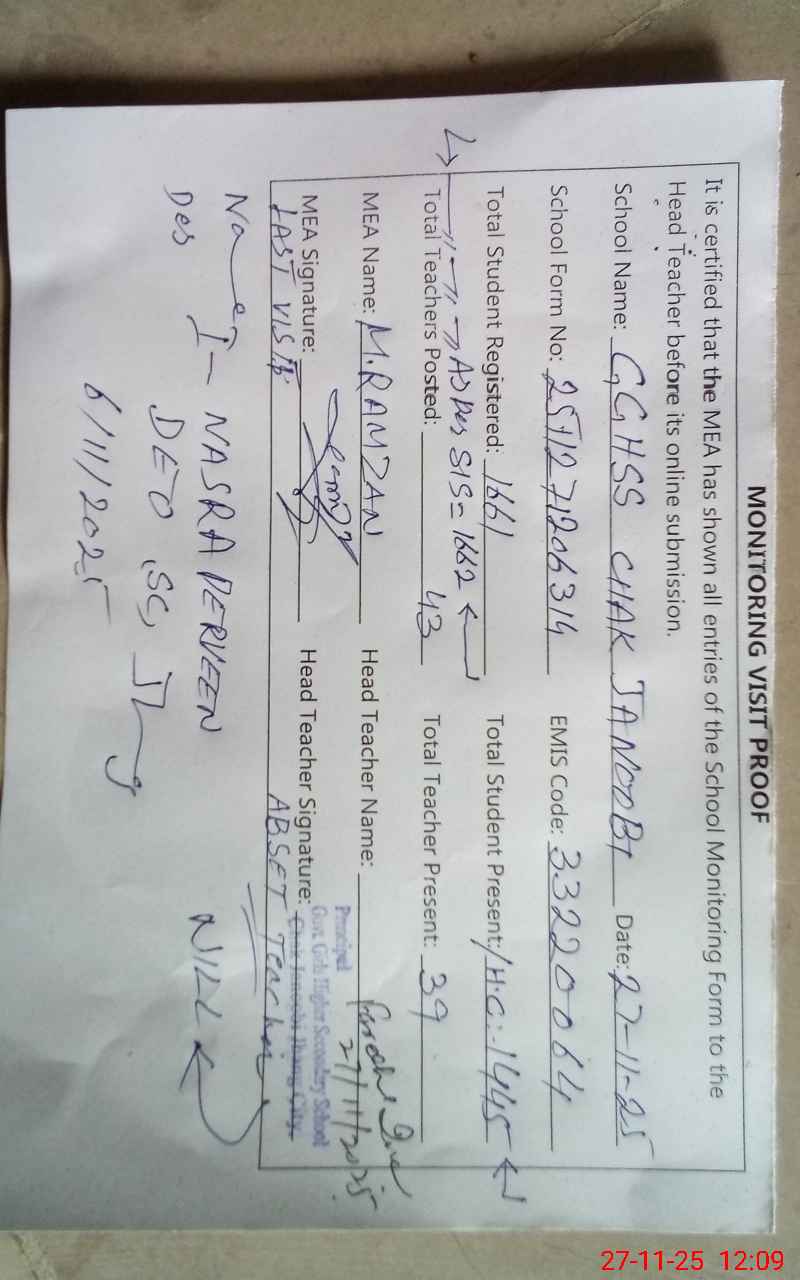 MONITORING VISIT PROOF
It is certified that the MEA has shown all entries of the School Monitoring Form to the
Head Teacher before its online submission.
School Name: GGHSS CHAK JANOOBI Date: 27-11-25
School Form No: 2511271206314 EMIS Code: 33220064
Total Student Registered: 1661 Total Student Present:/H.C:-1445
As Per SIS = 1662
Total Teachers Posted: 43 Total Teacher Present: 39
MEA Name: M.RAMZAN Head Teacher Name:
27/11/2025
Principal
Govt. Girls Higher Secondary School
Chak Janoobi Jhang City.
MEA Signature: Head Teacher Signature:
LAST VISIT: ABSET Teacher
Name:- NASRA PERVEEN NILL
Des DEO SC, Jhang
6/11/2025
27-11-25 12:09